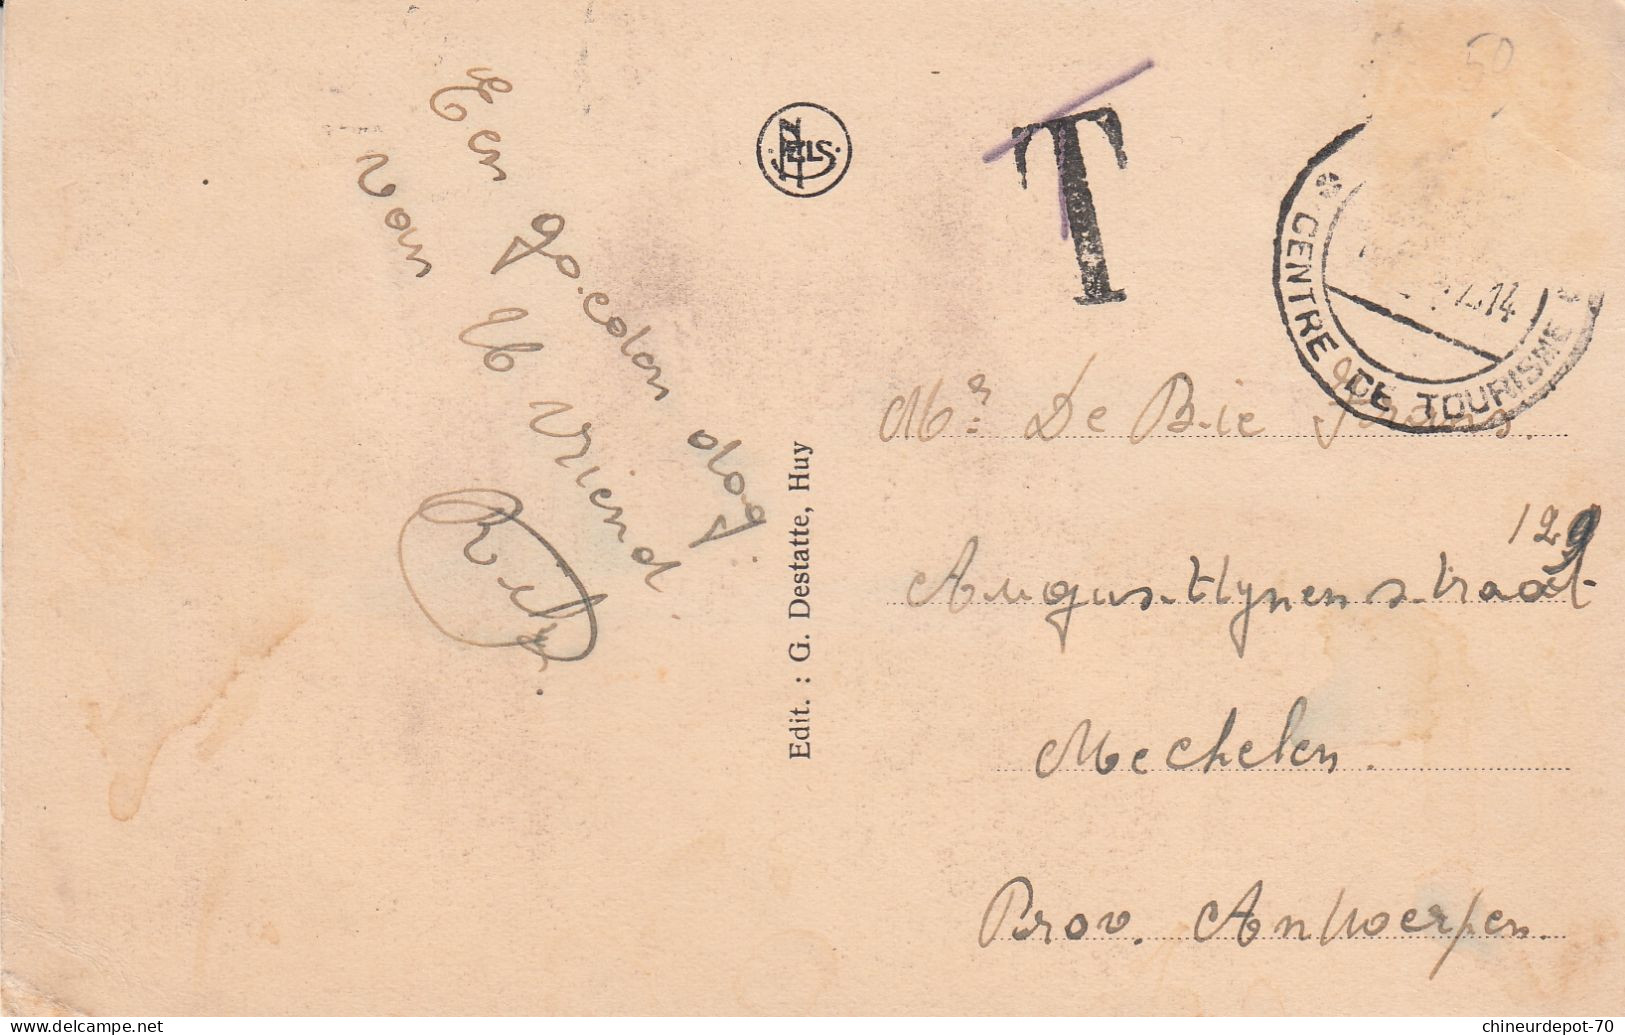 50
Een goeden dag
van Uw vriend
NELS
Edit. : G. Destatte, Huy
T
CENTRE DE TOURISME
14
Mr: De Bie Frans.
129
Augus-Hynenstraat
Mechelen.
Prov. Antwerpen.
chineurdepot-70